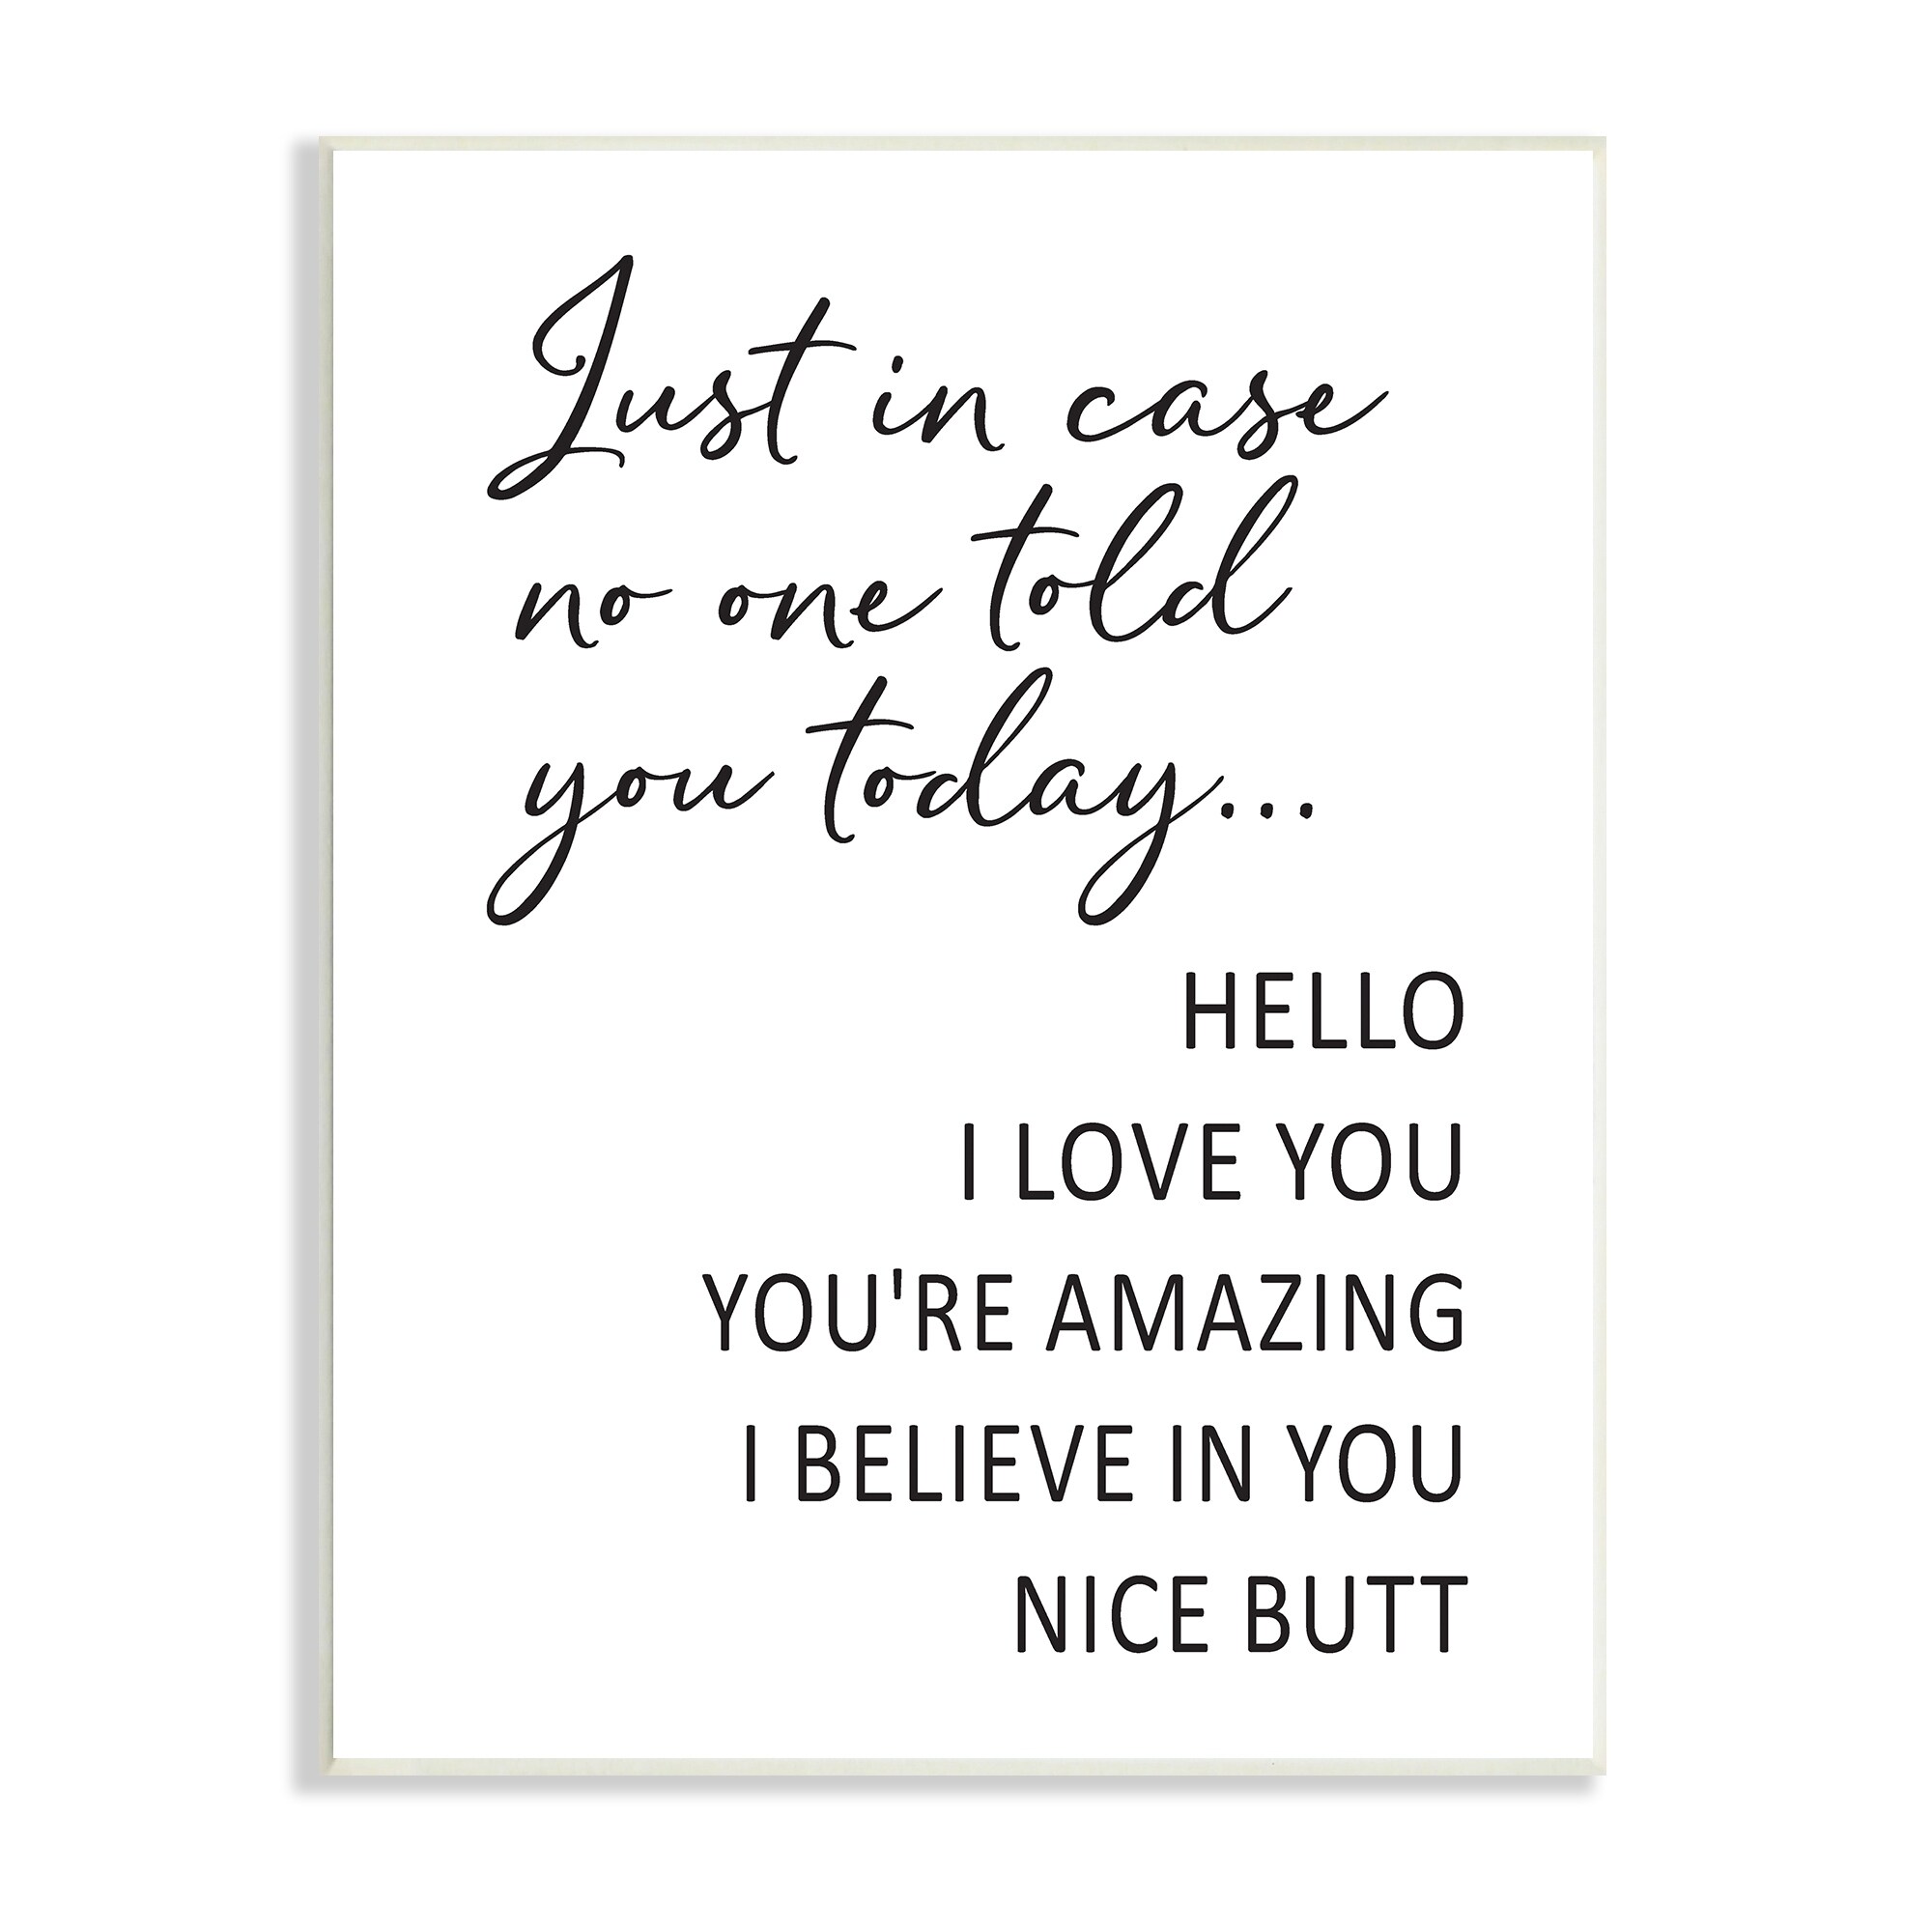 Just in case
no one told
you today...
HELLO
I LOVE YOU
YOU'RE AMAZING
I BELIEVE IN YOU
NICE BUTT